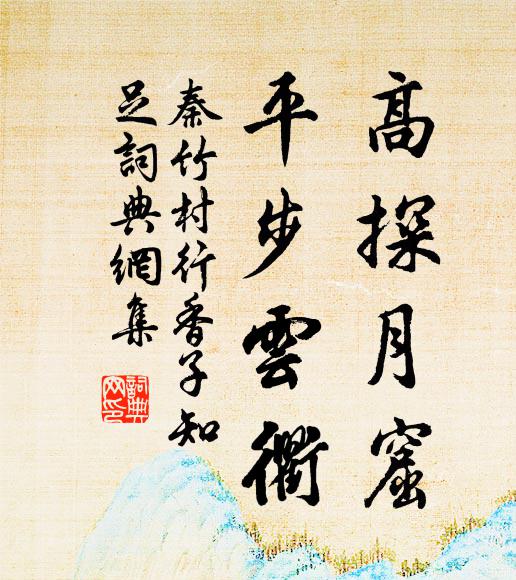 高探月窟
平步雲衢
秦竹村行香子知
足詞典網集
詞典
網印